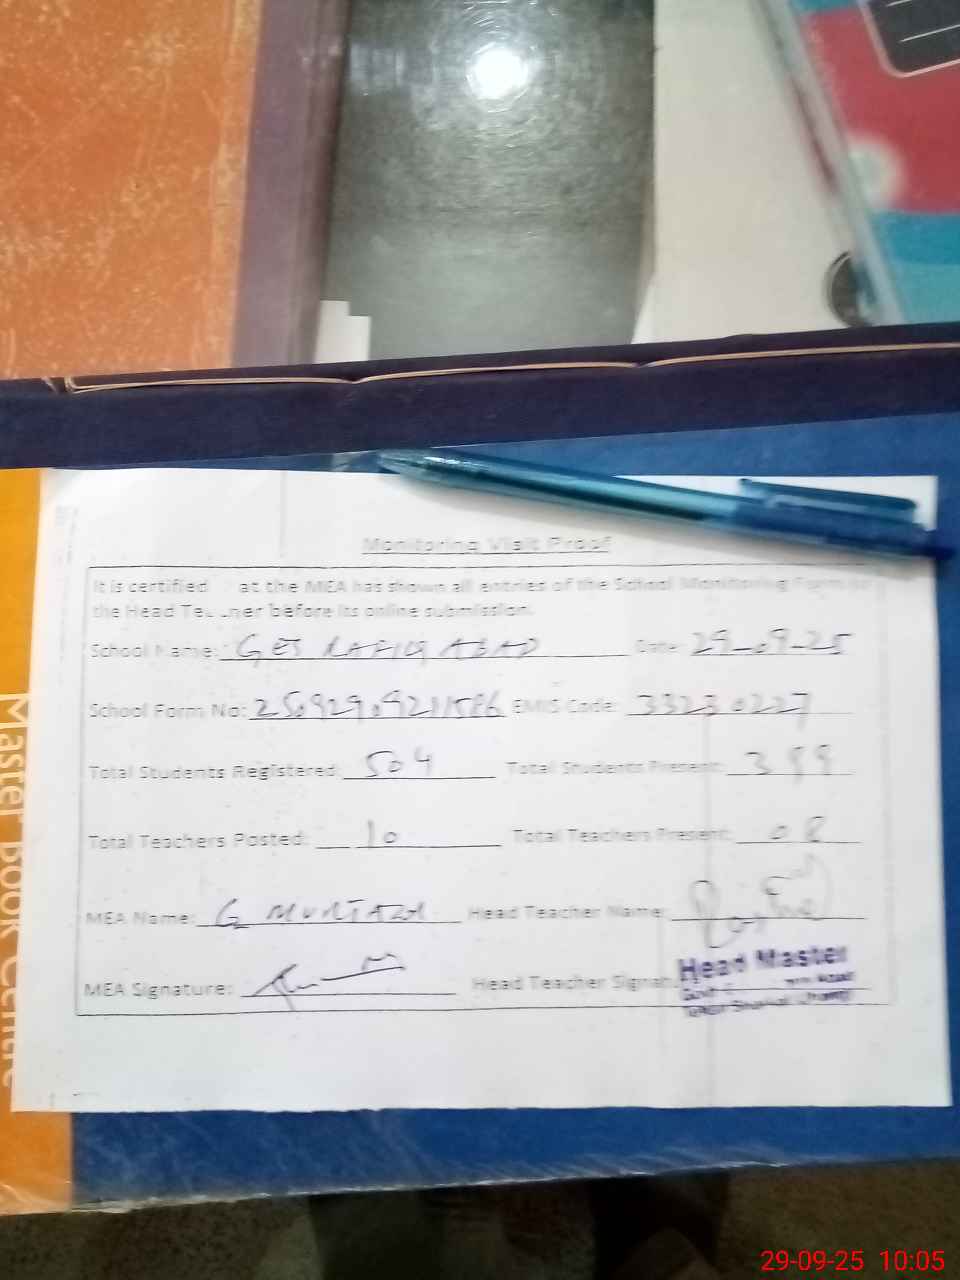 Monitoring Visit Proof
It is certified at the MEA has shown all entries of the School Monitoring Form to
the Head Teacher before its online submission.
School Name: GES RAFIQ ABAD Date: 29-09-25
School Form No: EMIS Code: 33230227
Total Students Registered: 504 Total Students Present: 399
Total Teachers Posted: 10 Total Teachers Present: 08
MEA Name: G MURTAZA Head Teacher Name:
MEA Signature: Head Teacher Signat
Head Master
Govt
Master Book Centre
29-09-25 10:05